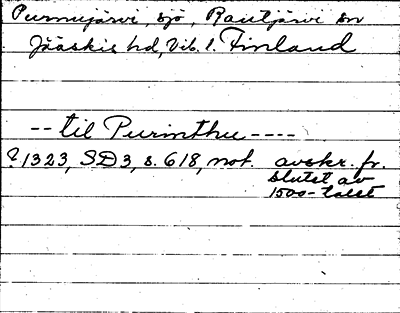 Purnujärvi, sjö, Rautjärvi sn
Jääskis hd, Vib. l. Finland
-- til Purinthu ----
? 1323, SD3, s. 618, not. avskr. fr.
slutet av
1500-talet